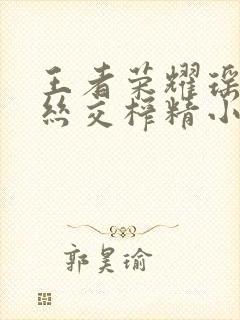 王者荣耀瑶
丝交榨精小
郭昊瑜